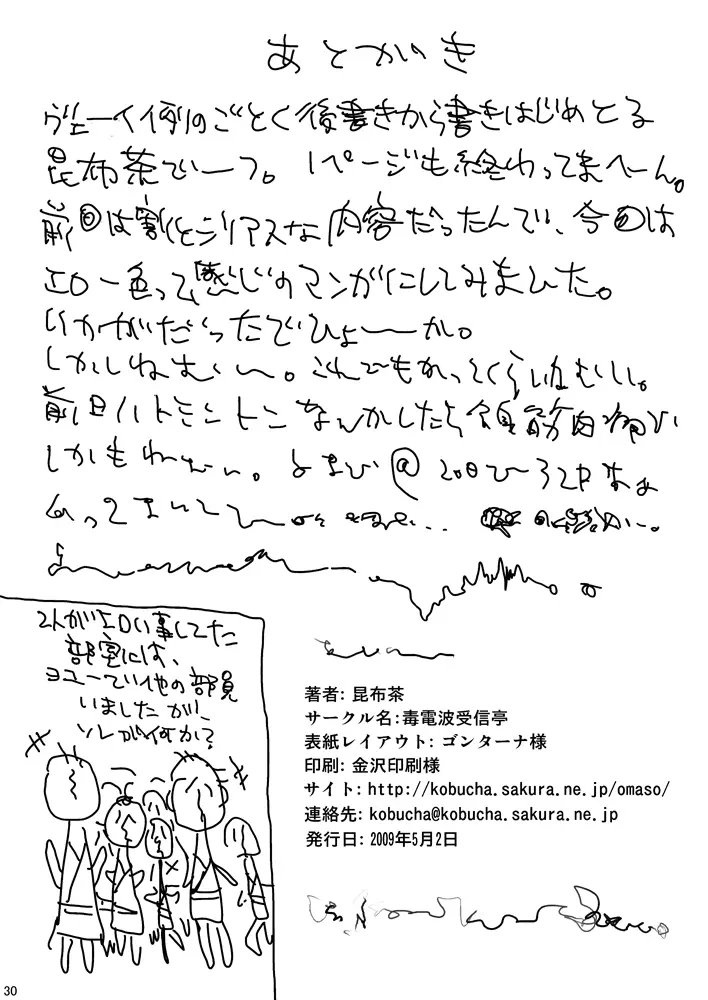 あとがき
ヴェーイ例のごとく後書きから書きはじめとる
昆布茶でーす。1ページも終わってまへーん。
前回は割とシリアスな内容だったんで、今回は
エロ一色って感じのマンガにしてみまひた。
いかがだったでひょーーか。
しかしねむい〜。これでもかってくらいねむい。
前日バトミントンなんかしたら全員筋肉痛で
しかもねむい。
2人がエロい事してた
部室には、
ヨユーで他の部員
いましたが、
ソレが何か?
著者: 昆布茶
サークル名:毒電波受信亭
表紙レイアウト: ゴンターナ様
印刷: 金沢印刷様
サイト: http://kobucha.sakura.ne.jp/omaso/
連絡先: kobucha@kobucha.sakura.ne.jp
発行日: 2009年5月2日
30